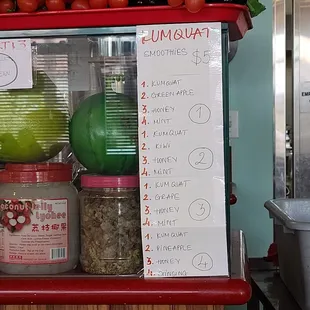 KUMQUAT
SMOOTHIES $5
1. KUMQUAT
2. GREEN APPLE
3. HONEY
4. MINT
1
1. KUMQUAT
2. KIWI
3. HONEY
4. MINT
2
1. KUMQUAT
2. GRAPE
3. HONEY
4. MINT
3
1. KUMQUAT
2. PINEAPPLE
3. HONEY
4. GINSENG
4
coconut jelly
Lychee